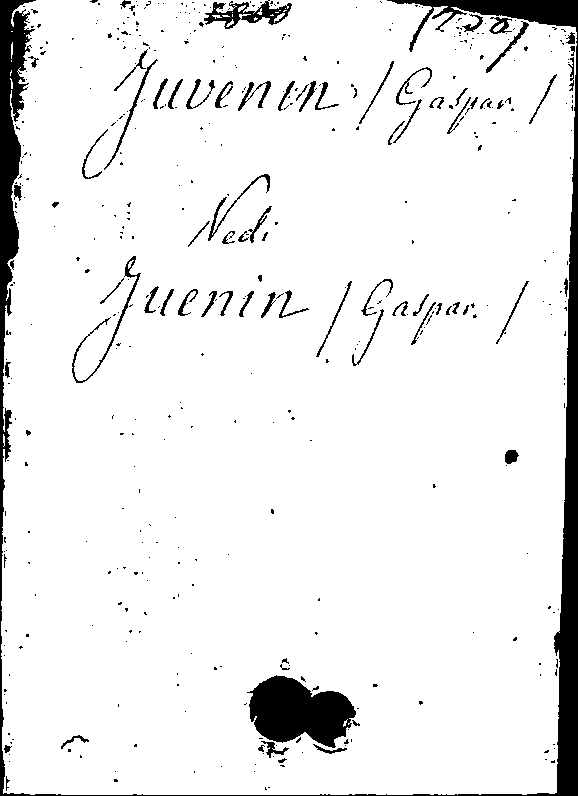 Juvenin / Gaspar. /
Vedi
Juenin / Gaspar. /